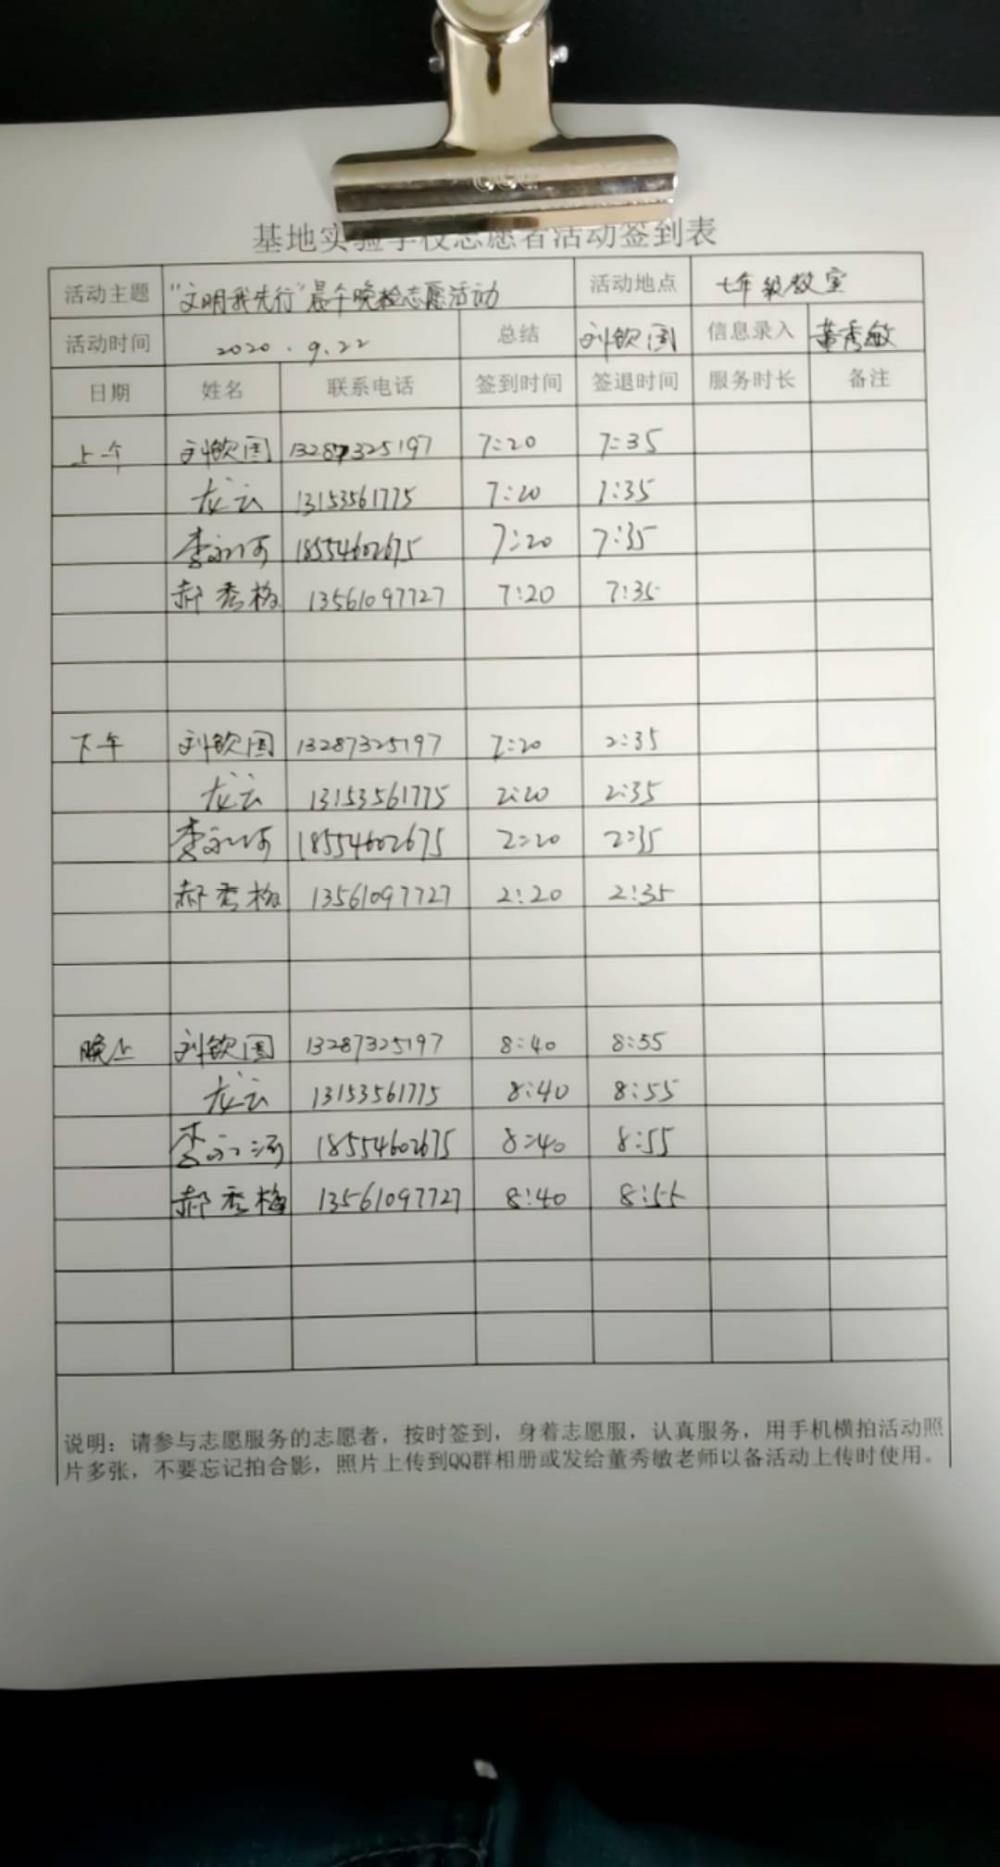 基地实验学校志愿者活动签到表
活动主题 "文明我先行"晨午晚检志愿活动 活动地点 七年级教室
活动时间 2020.9.22 总结 刘钦国 信息录入 董秀敏
日期 姓名 联系电话 签到时间 签退时间 服务时长 备注
上午 刘钦国 13287325197 7:20 7:35
龙云 13153561775 7:20 7:35
李永河 18554602675 7:20 7:35
郝秀梅 13561097727 7:20 7:35
下午 刘钦国 13287325197 2:20 2:35
龙云 13153561775 2:20 2:35
李永河 18554602675 2:20 2:35
郝秀梅 13561097727 2:20 2:35
晚上 刘钦国 13287325197 8:40 8:55
龙云 13153561775 8:40 8:55
李永河 18554602675 8:40 8:55
郝秀梅 13561097727 8:40 8:55
说明：请参与志愿服务的志愿者，按时签到，身着志愿服，认真服务，用手机横拍活动照
片多张，不要忘记拍合影，照片上传到QQ群相册或发给董秀敏老师以备活动上传时使用。